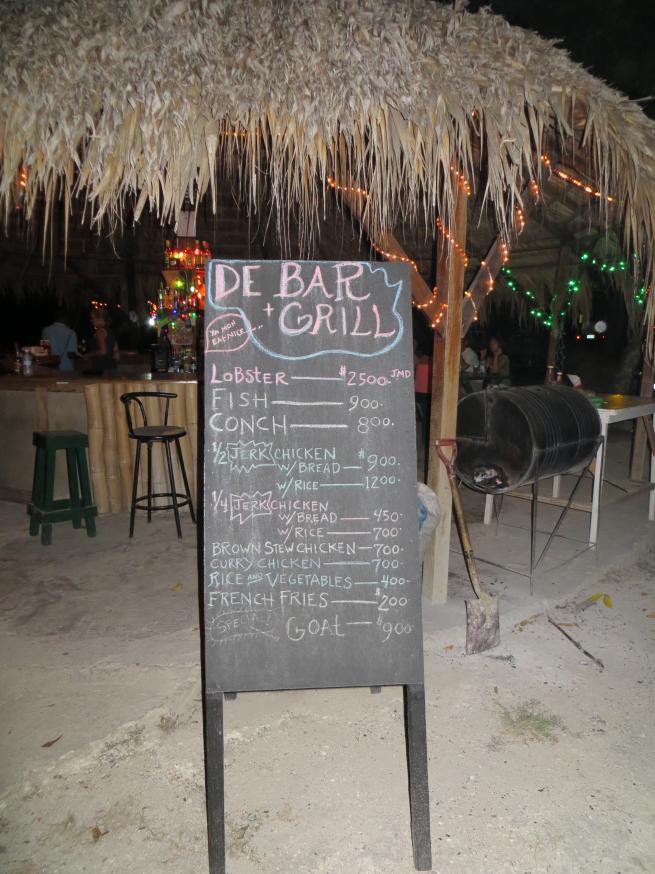 DE BAR
+ GRILL
YA MON
LOBSTER — $2500. JMD
FISH — 900.
CONCH — 800.
1/2 JERK CHICKEN
W/ BREAD — $900.
W/ RICE — 1200.
1/4 JERK CHICKEN
W/ BREAD — 450.
W/ RICE — 700.
BROWN STEW CHICKEN — 700.
CURRY CHICKEN — 700.
RICE AND VEGETABLES — 400.
FRENCH FRIES — $200
SPECIAL! GOAT — $900